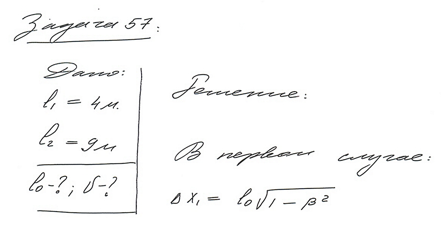 Задача 57:
Дано:
l₁ = 4 м.
l₂ = 9 м
l₀ - ?; υ - ?
Решение:
В первом случае:
Δx₁ = l₀√(1 - β²)